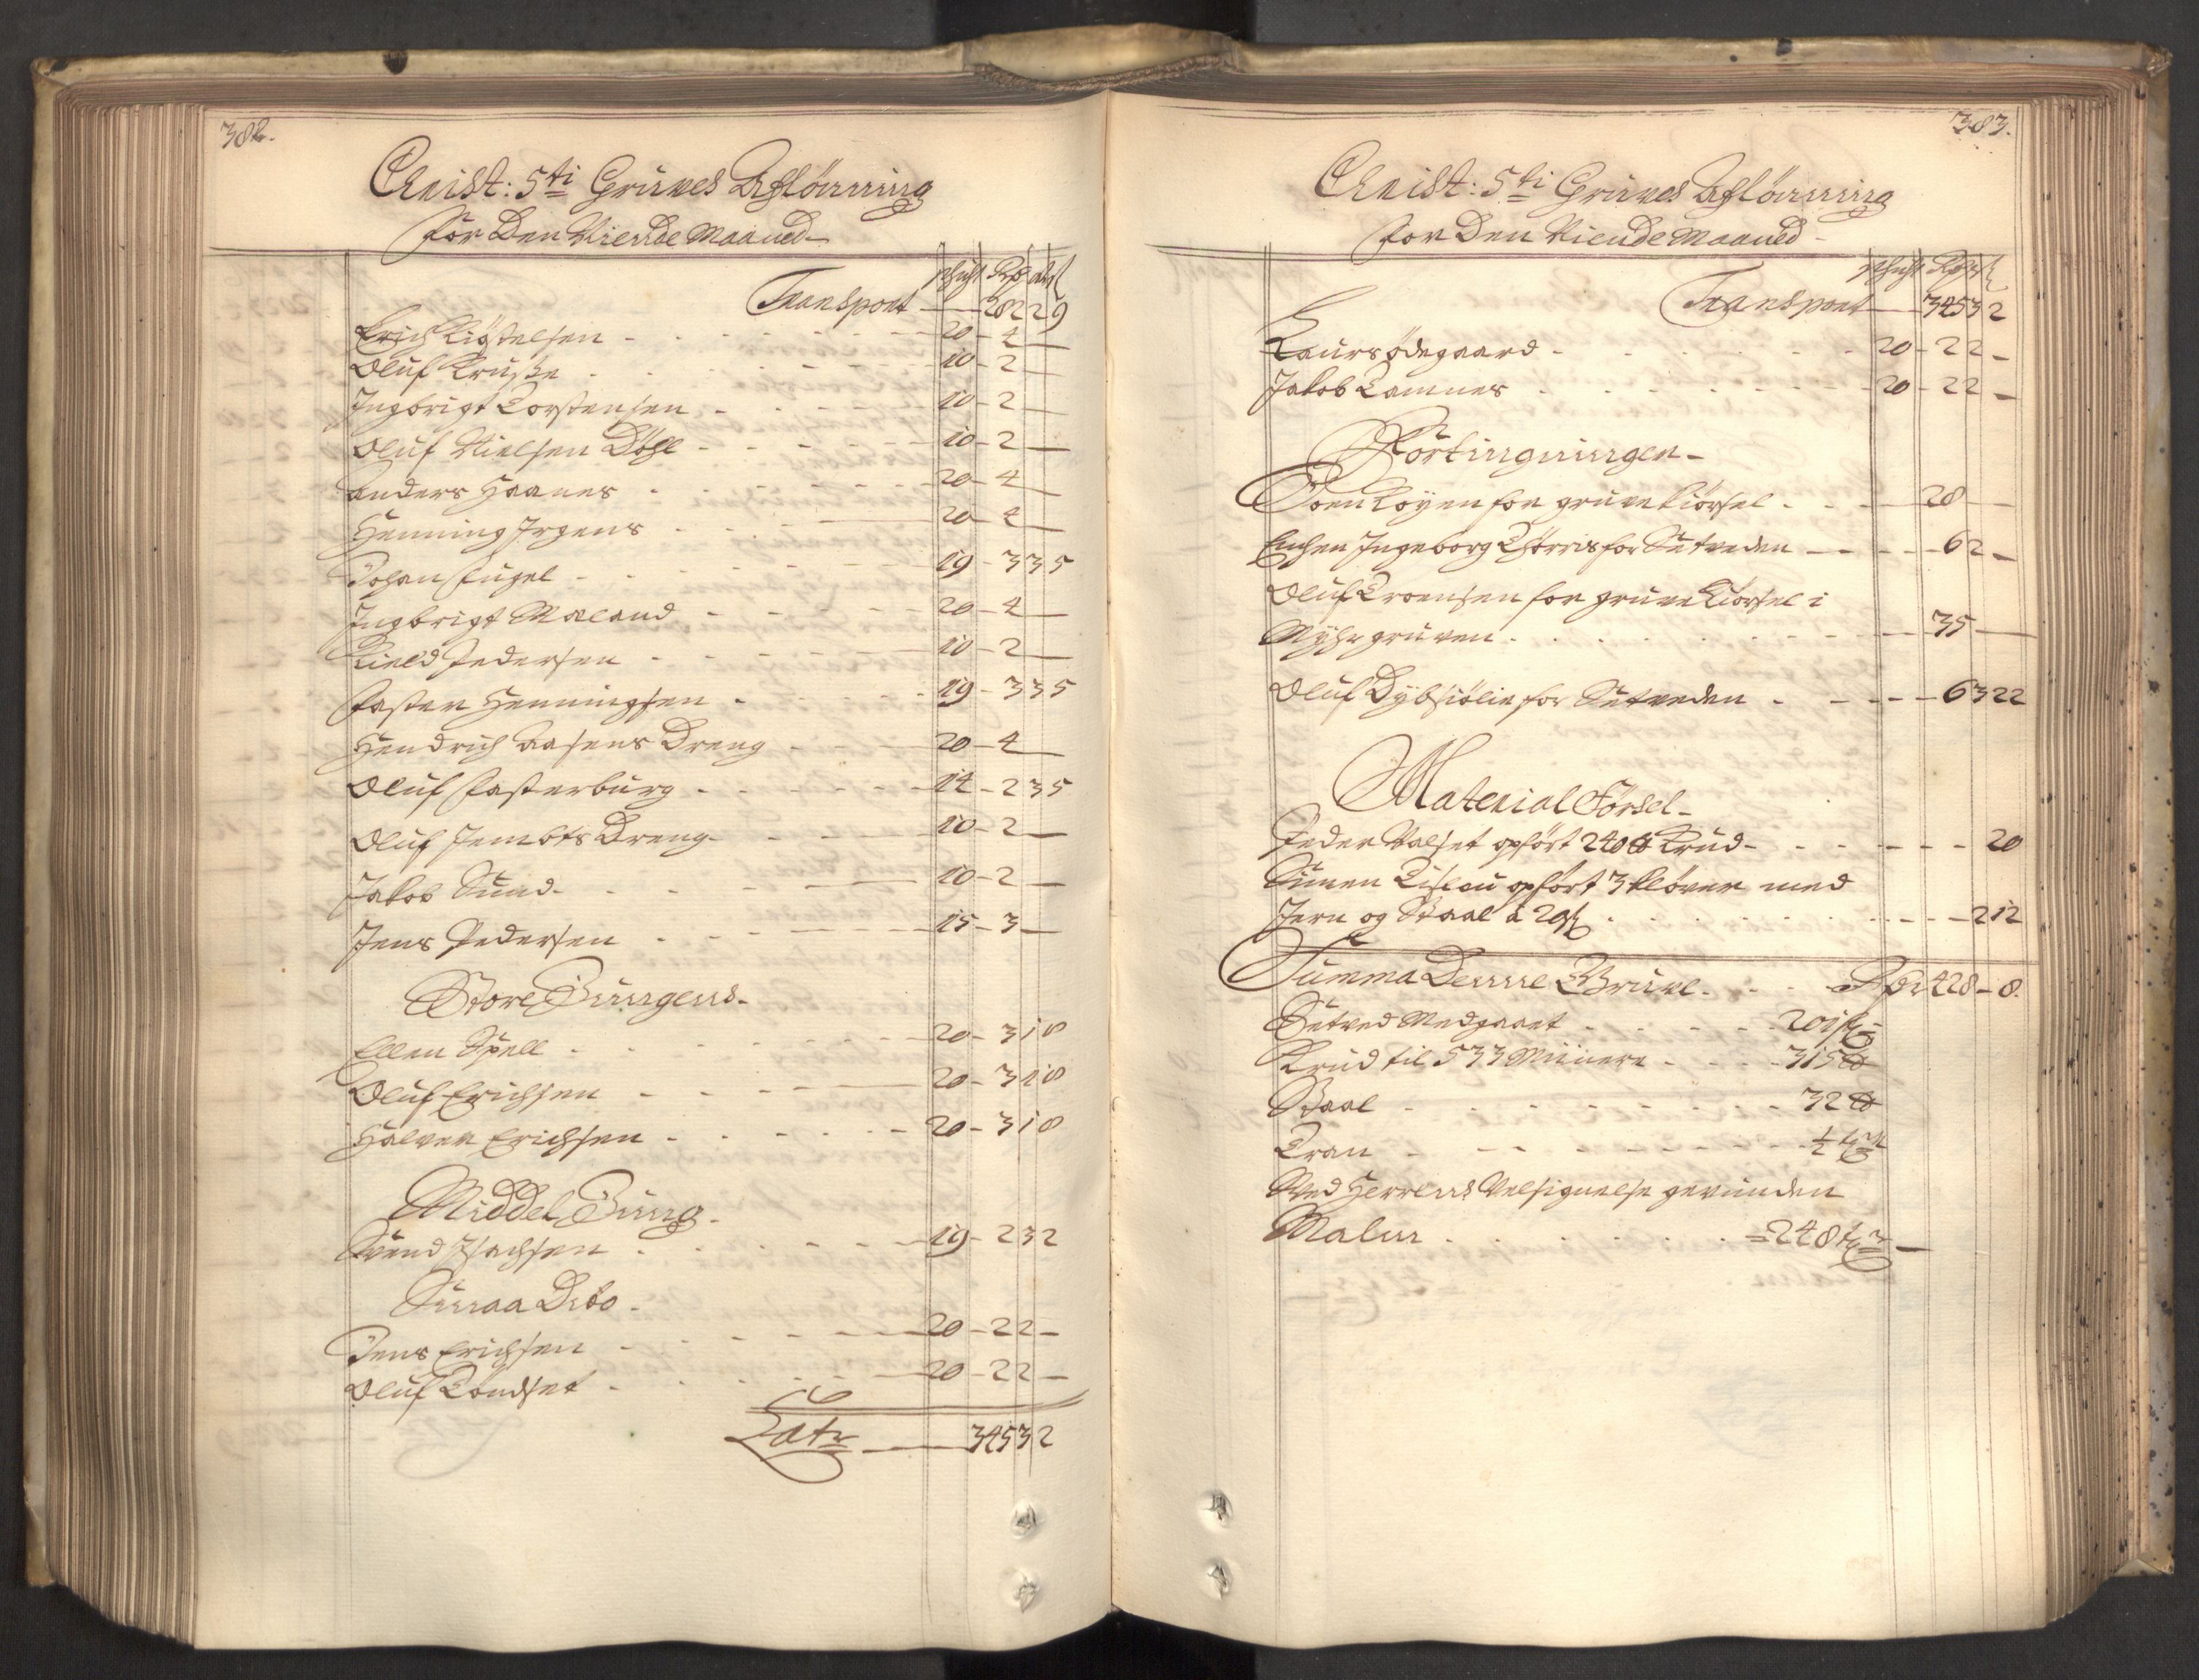 382.
Christ: 5ti Gruves Aflönning
for Den Niende Maaned
Schicht Rdr ort s
Transport — 282 2 9
Erich Kiöstelsen - 20 - 4 —
Oluf Kruse - 10 - 2 —
Ingbrigt Torstensen - 10 - 2 —
Oluf Nielsen Döhl - 10 - 2 —
Anders Haanes - 20 - 4 —
Henning Irgens - 20 - 4 —
Johan Fugel - 19 - 3 3 5
Ingbrigt Maland - 20 - 4 —
Kield Pedersen - 10 - 2 —
Faster Henningsen - 19 - 3 3 5
Hendrich Aasens Dreng - 20 - 4 —
Oluf Fasterburg - 14 - 2 3 5
Oluf Jembts Dreng - 10 - 2 —
Jakob Sund - 10 - 2 —
Jens Pedersen - 15 - 3 —
Store Jungens
Ellen Spell - 20 - 3 1 8
Oluf Erichsen - 20 - 3 1 8
Halvor Erichsen - 20 - 3 1 8
Middel Jung
Svend Isachsen - 19 - 2 3 2
Smaa Dito
Jens Erichsen - 20 - 2 2 —
Oluf Töndset - 20 - 2 2 —
Latr — 345 3 2
383.
Christ: 5ti Gruves Aflönning
for Den Niende Maaned
Schicht Rdr ort s
Transport — 345 3 2
Laurs Ödegaard - 20 - 2 2 —
Jakob Tamnes - 20 - 2 2 —
Fortingninger
Joen Royen for gruve kiörsel - 28 —
Enchen Ingeborg Thörris for Sætveden - 6 2 —
Oluf Troensen for gruve Kiörsel i
Nyhr gruven - 35 —
Oluf Dybsiölie for Sætveden - 6 3 22
Material Försel
Peder Valset opfört 240 ℔ Krud - 20
Simen Lislau opfört 3 klöver med
Jern og Staal á 20 s - 2 12
Summa Denne Gruve Rdr 428 - 8.
Sætved Medgaaet - 201 f
Krud til 533 Minere - 315 ℔
Staal - 32 ℔
Tran - ½ tr
Ved Herrens Velsignelse gevunden
Malm - 248 tr —